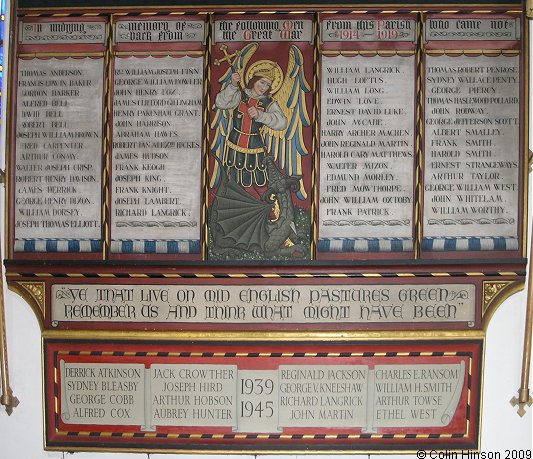 In undying
memory of
the Following Men
From this Parish
who came not
back from
the Great War
1914 - 1919
THOMAS ANDERSON.
FRANCIS IRWIN BAKER
GORDON BARKER
ALFRED BELL
DAVID BELL
ROBERT BELL
JOSEPH WILLIAM BROWN.
FRED CARPENTER
ARTHUR CONMY.
WALTER JOSEPH CRISP.
ROBERT HENRY DAVISON
JAMES DERRICK
GEORGE HENRY DIXON.
WILLIAM DORSEY.
JOSEPH THOMAS ELLIOTT.
WILLIAM JOSEPH FINN
WILLIAM FOWLER
JOHN HENRY
JAMES CLIFFORD GILLINGHAM
HENRY PAKENHAM GRANT.
JOHN HARRISON.
ABRAHAM HAWES.
ROBERT IAN HICKES.
JAMES HUDSON
FRANK KEOGH
JOSEPH KING.
FRANK KNIGHT.
JOSEPH LAMBERT.
RICHARD LANGRICK.
WILLIAM LANGRICK.
HUGH LOFTUS.
WILLIAM LONG.
EDWIN LOVE.
ERNEST DAVID LUKE.
JOHN
HARRY ARCHER MACHEN.
JOHN REGINALD MARTIN
HAROLD CARY MATTHEWS.
WILLIAM MIZON.
EDMUND MORLEY.
FRED MOWTHORPE.
JOHN WILLIAM OXTOBY
FRANK PATRICK.
THOMAS ROBERT PENROSE
SYDNEY WALLACE PENTY
GEORGE PIERCY
THOMAS HASLEWOOD POLLARD
JOHN RODWAY.
GEORGE JEFFERSON SCOTT
ALBERT SMALLEY.
FRANK SMITH.
HAROLD SMITH.
ERNEST STRANGEWAYS
ARTHUR TAYLOR.
GEORGE WILLIAM WEST.
JOHN WHITELAM.
WILLIAM WORTHY.
"YE THAT LIVE ON MID ENGLISH PASTURES GREEN
REMEMBER US AND THINK WHAT MIGHT HAVE BEEN"
DERRICK ATKINSON
SYDNEY BLEASBY
GEORGE COBB
ALFRED COX
JACK CROWTHER
JOSEPH HIRD
ARTHUR HOBSON
AUBREY HUNTER
1939
1945
REGINALD JACKSON
GEORGE V. KNEESHAW
RICHARD LANGRICK
JOHN MARTIN
CHARLES E. RANSOM
WILLIAM H. SMITH
ARTHUR TOWSE
ETHEL WEST
© Colin Hinson 2009